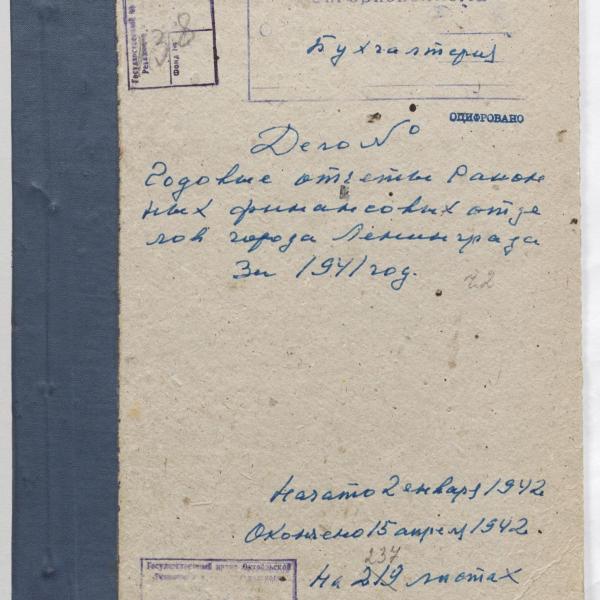 Государственный
Фонд №
38
Бухгалтерия
ОЦИФРОВАНО
Дело №
Годовые отчеты район
ных финансовых отде
лов города Ленинграда
За 1941 год.
ч.2
Начато 2 января 1942
Окончено 15 апреля 1942.
237
На 219 листах
Государственный архив Октябрьской